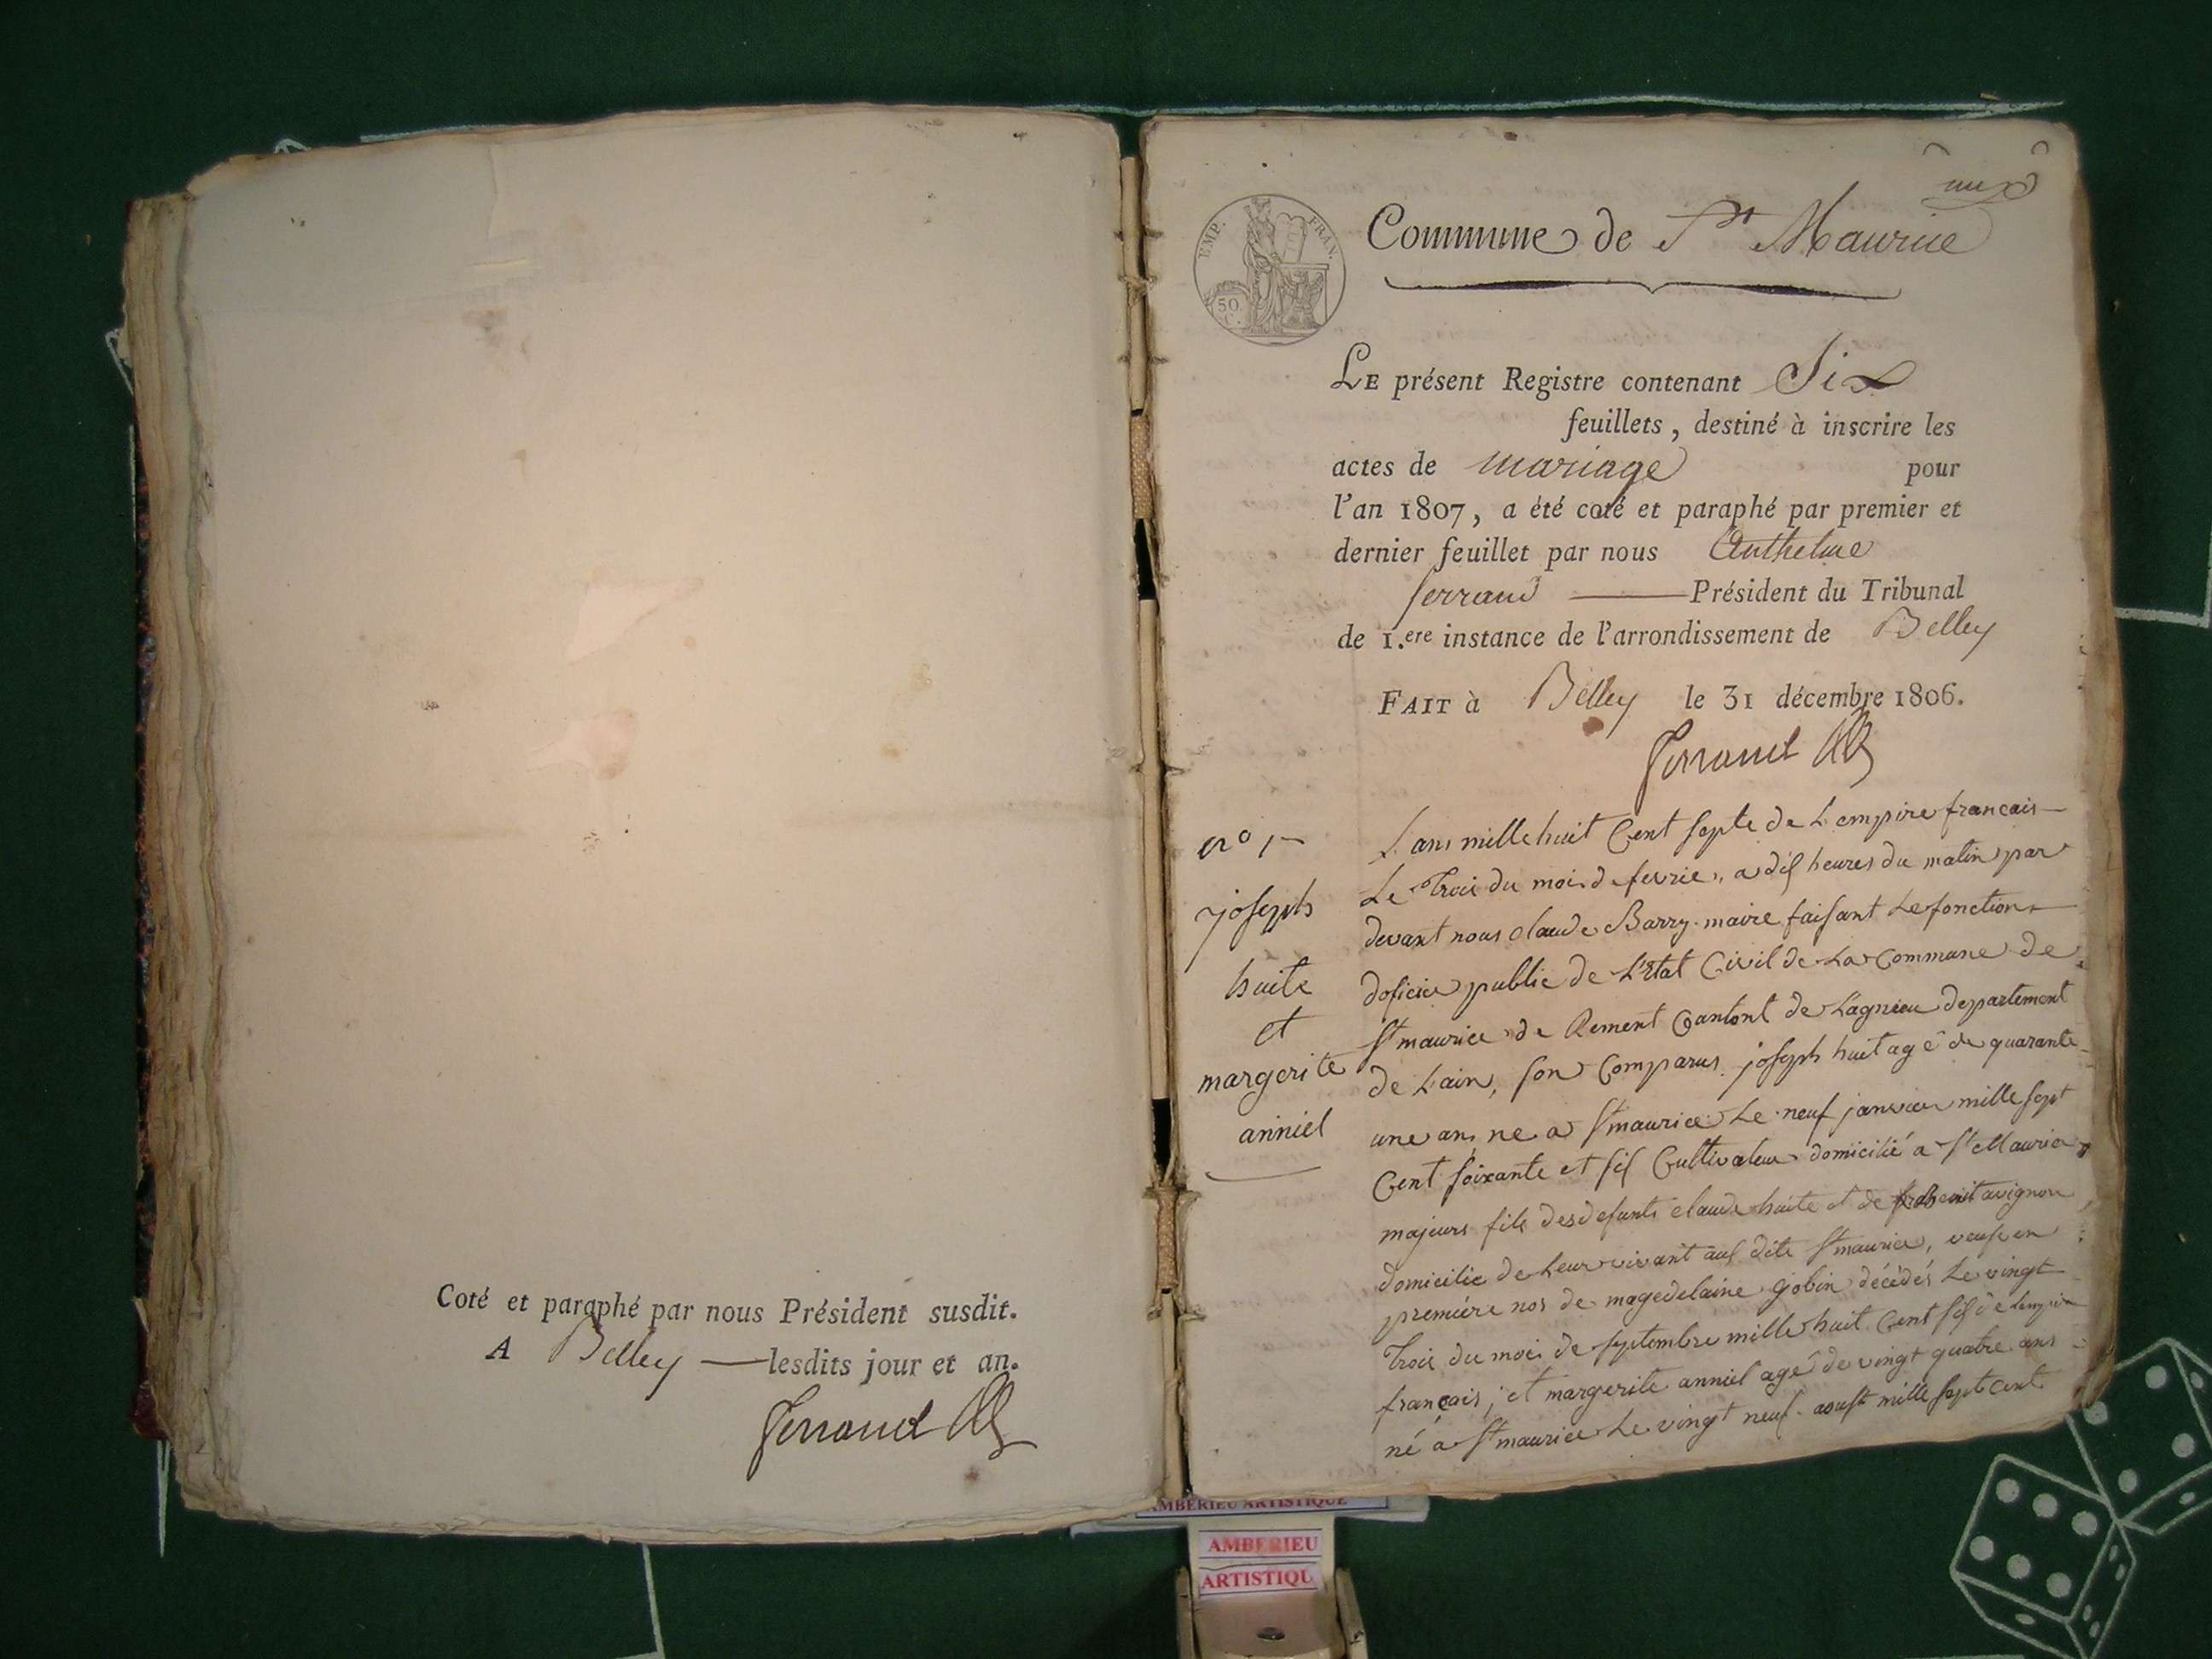 Coté et paraphé par nous Président susdit.
A Belley — lesdits jour et an.
Ferrand
EMP. FRAN.
50. C.
Commune de St Maurice
LE présent Registre contenant Six
feuillets, destiné à inscrire les
actes de mariage pour
l'an 1807, a été coté et paraphé par premier et
dernier feuillet par nous Anthelme
ferrand — Président du Tribunal
de 1.ere instance de l'arrondissement de Belley
FAIT à Belley le 31 décembre 1806.
Ferrand
no 1
joseph
huite
et
margerite
anniel
L'ans mille huit Cent septe de L'empire francais
Le Trois du mois de fevrie, a dis heures du matin par
devant nous claude Barry maire faisant Le fonction
doficier public de L'Etat Civil de La Commune de
St maurice de Rement Cantont de Lagnieu departement
de Lain, son Comparus joseph huit agé de quarante
une ans ne a St maurice Le neuf janvier mille sept
Cent soixante et sis Cultivateur domicilié a St Maurice
majeurs fils des defunts claude huite et de avignon
domicilie de Leur vivant aus dite St maurice, veuf en
premiére nos de magedelaine gobin décédés Le vingt
Trois du mois de septembre mille huit Cent sis de Lempire
français; et margerite anniel agé de vingt quatre ans
né a St maurice Le vingt neuf aoust mille sept cent
AMBERIEU ARTISTIQUE
AMBERIEU
ARTISTIQU